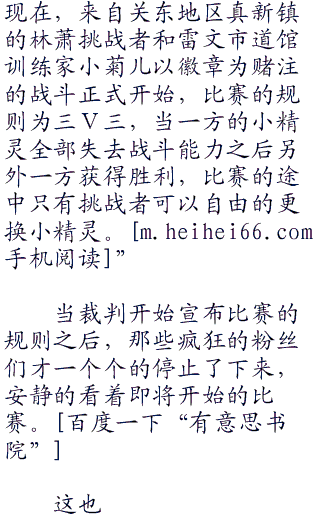 现在，来自关东地区真新镇
的林萧挑战者和雷文市道馆
训练家小菊儿以徽章为赌注
的战斗正式开始，比赛的规
则为三Ｖ三，当一方的小精
灵全部失去战斗能力之后另
外一方获得胜利，比赛的途
中只有挑战者可以自由的更
换小精灵。[m.heihei66.com
手机阅读]”
当裁判开始宣布比赛的
规则之后，那些疯狂的粉丝
们才一个个的停止了下来，
安静的看着即将开始的比
赛。[百度一下“有意思书
院”]
这也